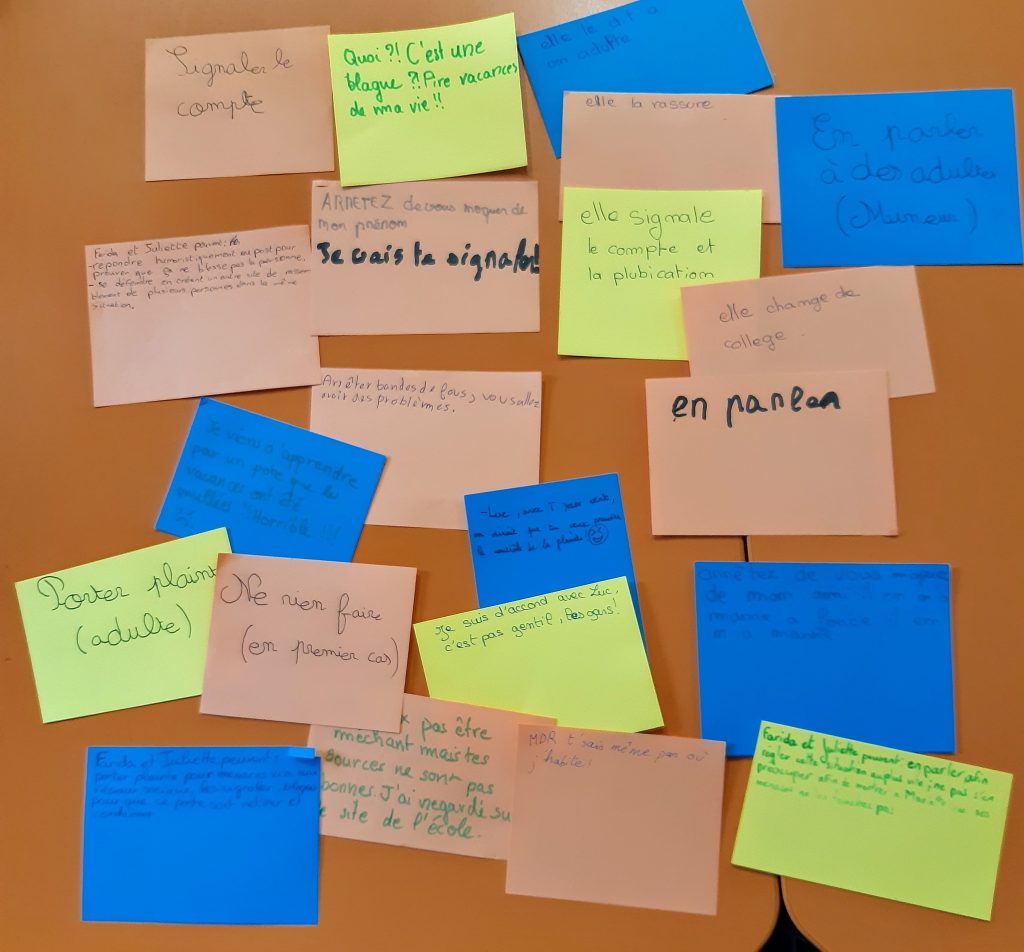 Signaler le
compte
Quoi ?! C'est une
blague ?! Pire vacances
de ma vie !!
elle le dit a
un adulte
elle la rassure
En parler
à des adultes
(Mineur)
ARRETEZ de vous moquer de
mon prénom
Je vais te signaler!
elle signale
le compte et
la plubication
Farida et Juliette peuvent:
-répondre humoristiquement au post pour
prouver que ça ne blesse pas la personne,
- se défendre en créant un autre site de rassem
blement de plusieurs personnes dans la même
situation.
elle change de
college.
Arrêter bandes de fous, vous allez
avoir des problèmes.
en parler
Je viens d'apprendre
par un pote que les
vacances ont été
annulées !! Horrible !!!
-Luc, avec T veste verte,
on dirait que tu veux prendre
le contrôle de la planète
Porter plainte
(adulte)
Ne rien faire
(en premier cas)
Je suis d'accord avec Luc,
c'est pas gentil, les gars!
arrêtez de vous moquer
de mon
pas être
méchant mais tes
sources ne sont pas
bonnes. J'ai regardé su
site de l'école.
MDR t'sais même pas où
j'habite!
Farida et Juliette peuvent:
porter plainte pour
pour que ce poste soit retirer et
Farida et Juliette peuvent: en parler afin
régler cette situation au plus vite; ne pas s'en
préocuper afin de montrer à